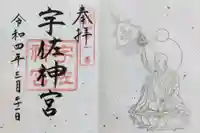 奉拝
宇佐神宮
令和四年三月二十一日